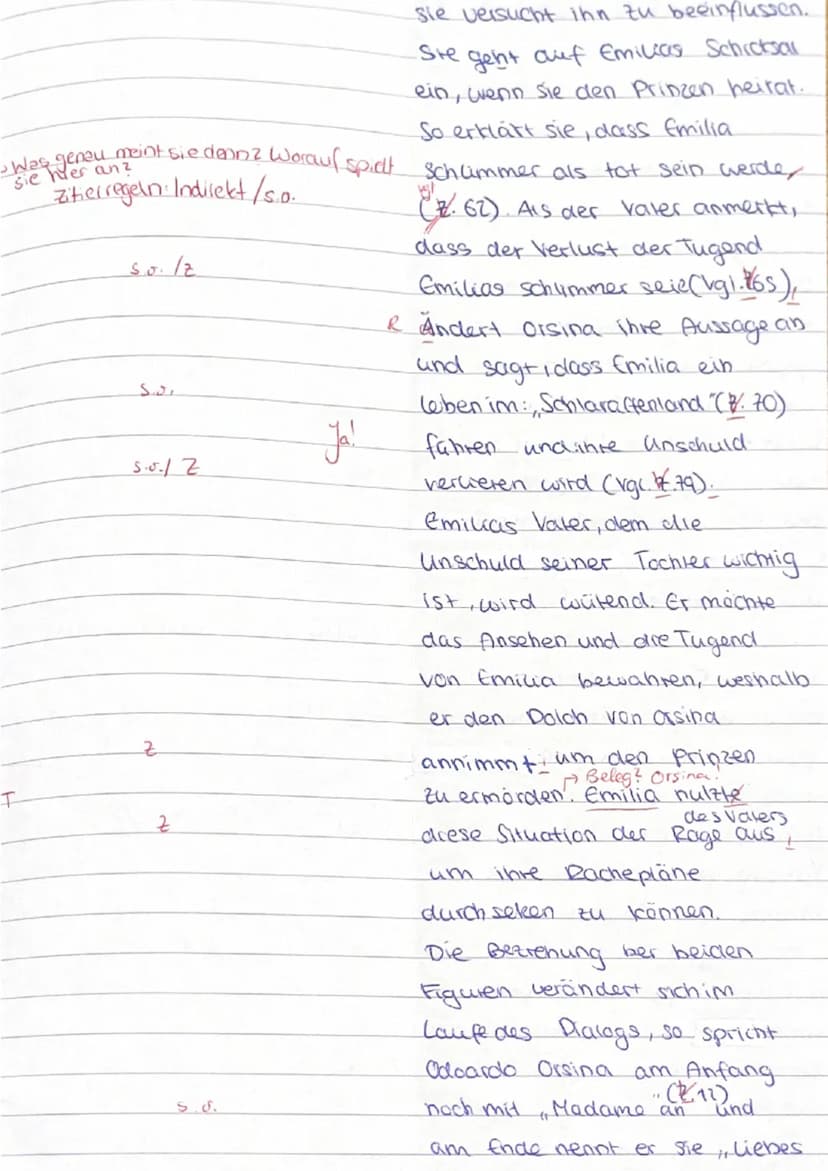 sie versucht ihn zu beeinflussen.
Sie geht auf Emilias Schicksal
ein, wenn sie den Prinzen heirat.
So erklärt sie, dass Emilia
Was genau meint sie denn? Worauf spielt
sie hier an?
Zitierregeln: Indirekt / s.o.
schlimmer als tot sein werde,
vgl.
(Z. 62). Als der Vater anmerkt,
dass der Verlust der Tugend
s.o. /Z
Emilias schlimmer seie (vgl. Z 65),
R
Ändert Orsina ihre Aussage an
und sagt, dass Emilia ein
s.o.
leben im: „Schlaraffenland" (Z. 70)
Ja!
führen und ihre Unschuld
s.o./ Z
verlieren wird (vgl. Z. 79).
Emilias Vater, dem die
Unschuld seiner Tochter wichtig
ist, wird wütend. Er möchte
das Ansehen und die Tugend
von Emilia bewahren, weshalb
er den Dolch von Orsina
Z
annimmt, um den Prinzen
→ Beleg? Orsina!
T
zu ermorden. Emilia nutzte
des Vaters
Z
diese Situation der Rage aus,
um ihre Rachepläne
durch seken zu können.
Die Beziehung ber beiden
Figuren verändert sich im
Laufe des Dialogs, so spricht
Odoardo Orsina am Anfang
(Z 12)
s.o.
noch mit „Madame" an und
am Ende nennt er sie „Liebes